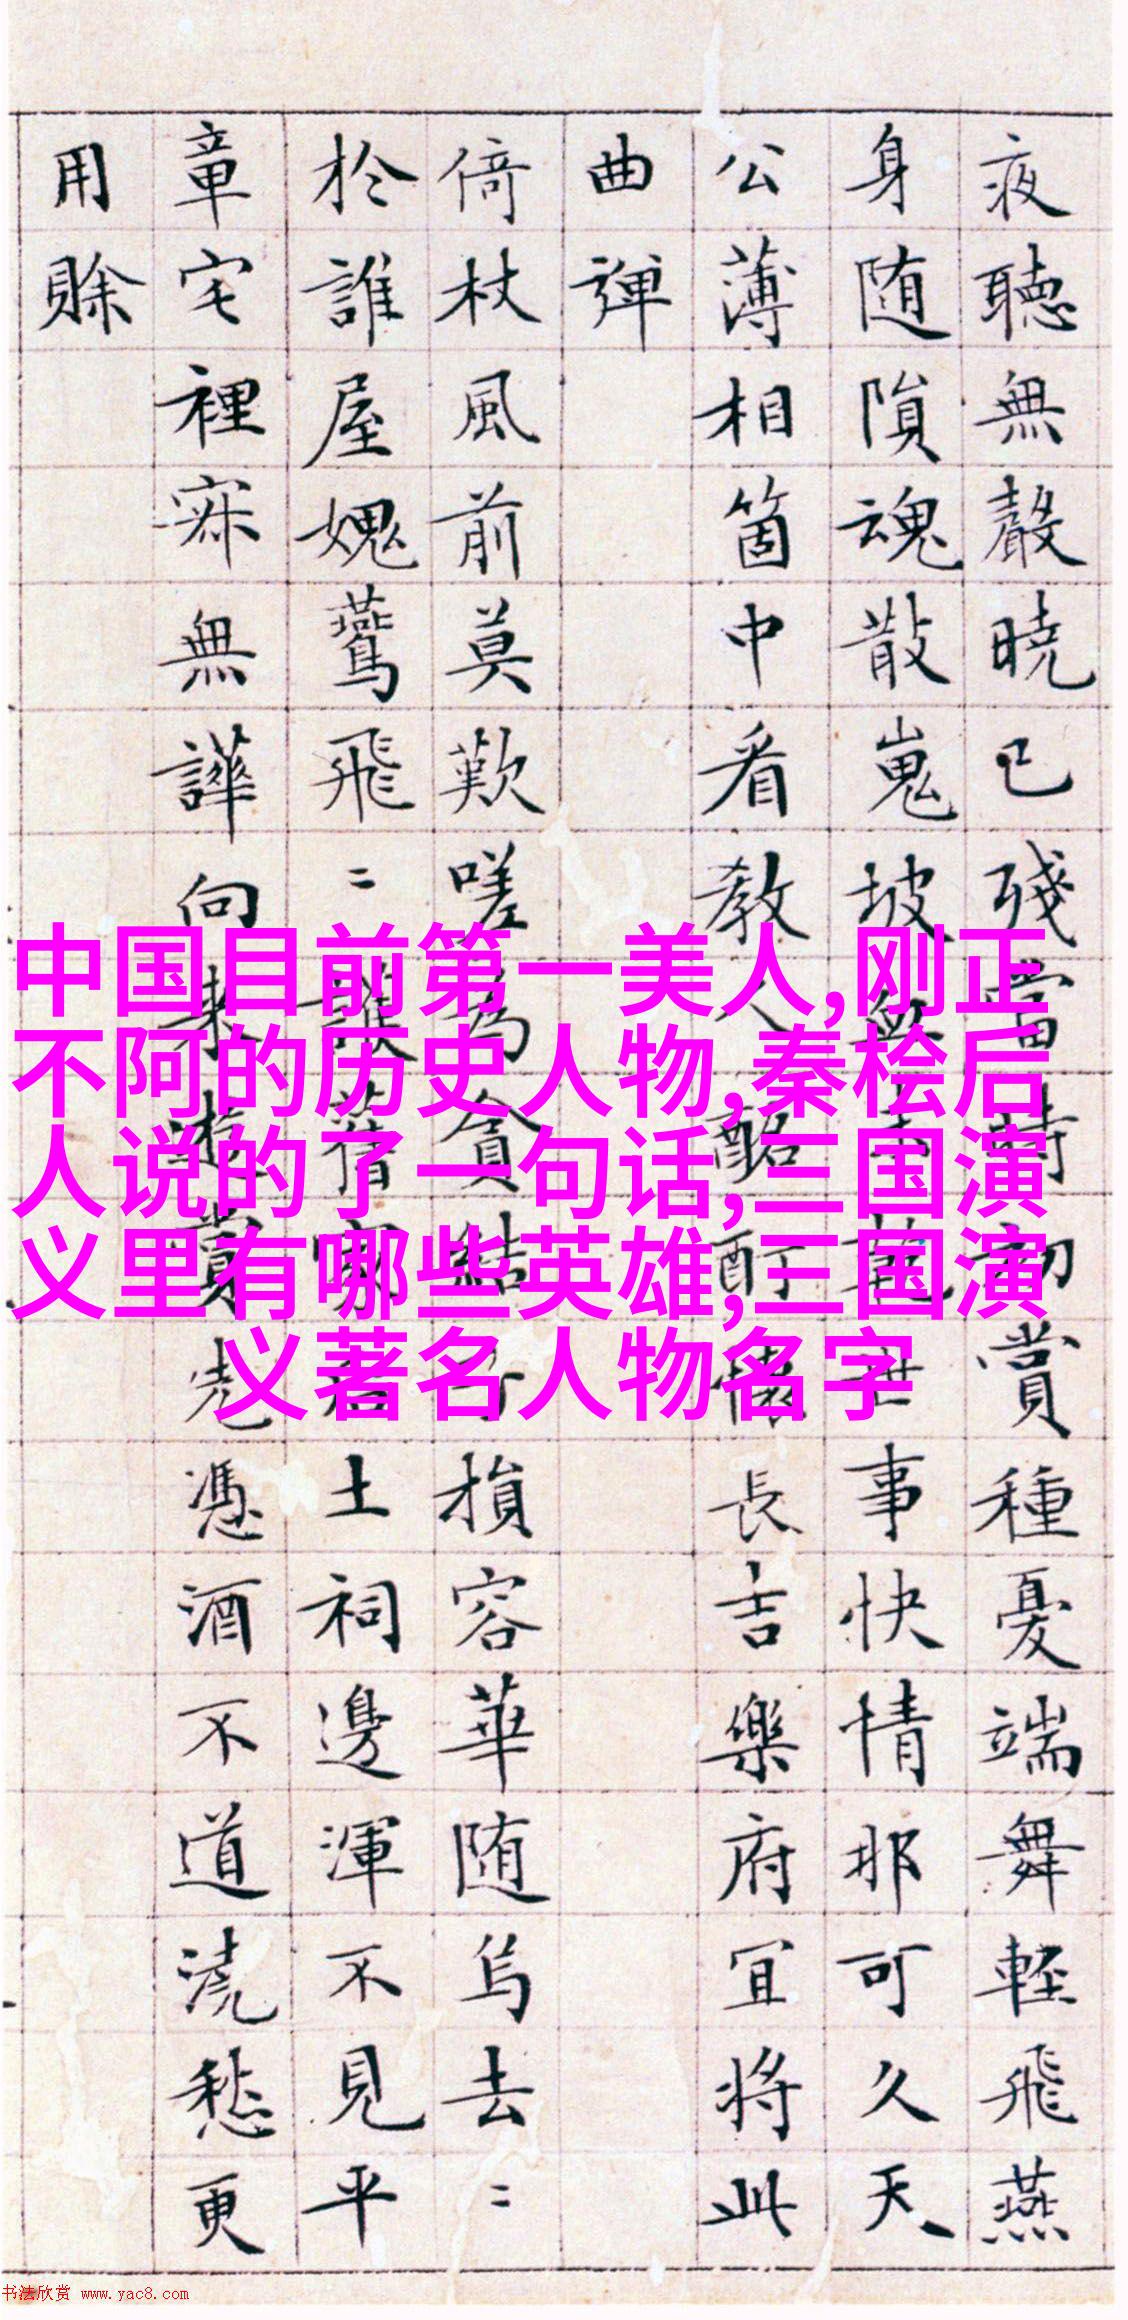 夜聽無聲曉已殘當時初賞種憂端舞輕飛燕
身随隕魂散嵬坡無世事快情那可久天
公薄相箇中看教人酩酊懷長吉樂府宜將此
曲彈
倚杖風前莫歎嗟為貧損容華随烏去〻
於誰屋媿鷰飛〻誰借土祠邊渾不見平
章宅裡寂無譁向來遊賞先憑酒不道澆愁更
用賒
中国目前第一美人,刚正
不阿的历史人物,秦桧后
人说的了一句话,三国演
义里有哪些英雄,三国演
义著名人物名字
书法欣赏 www.yac8.com